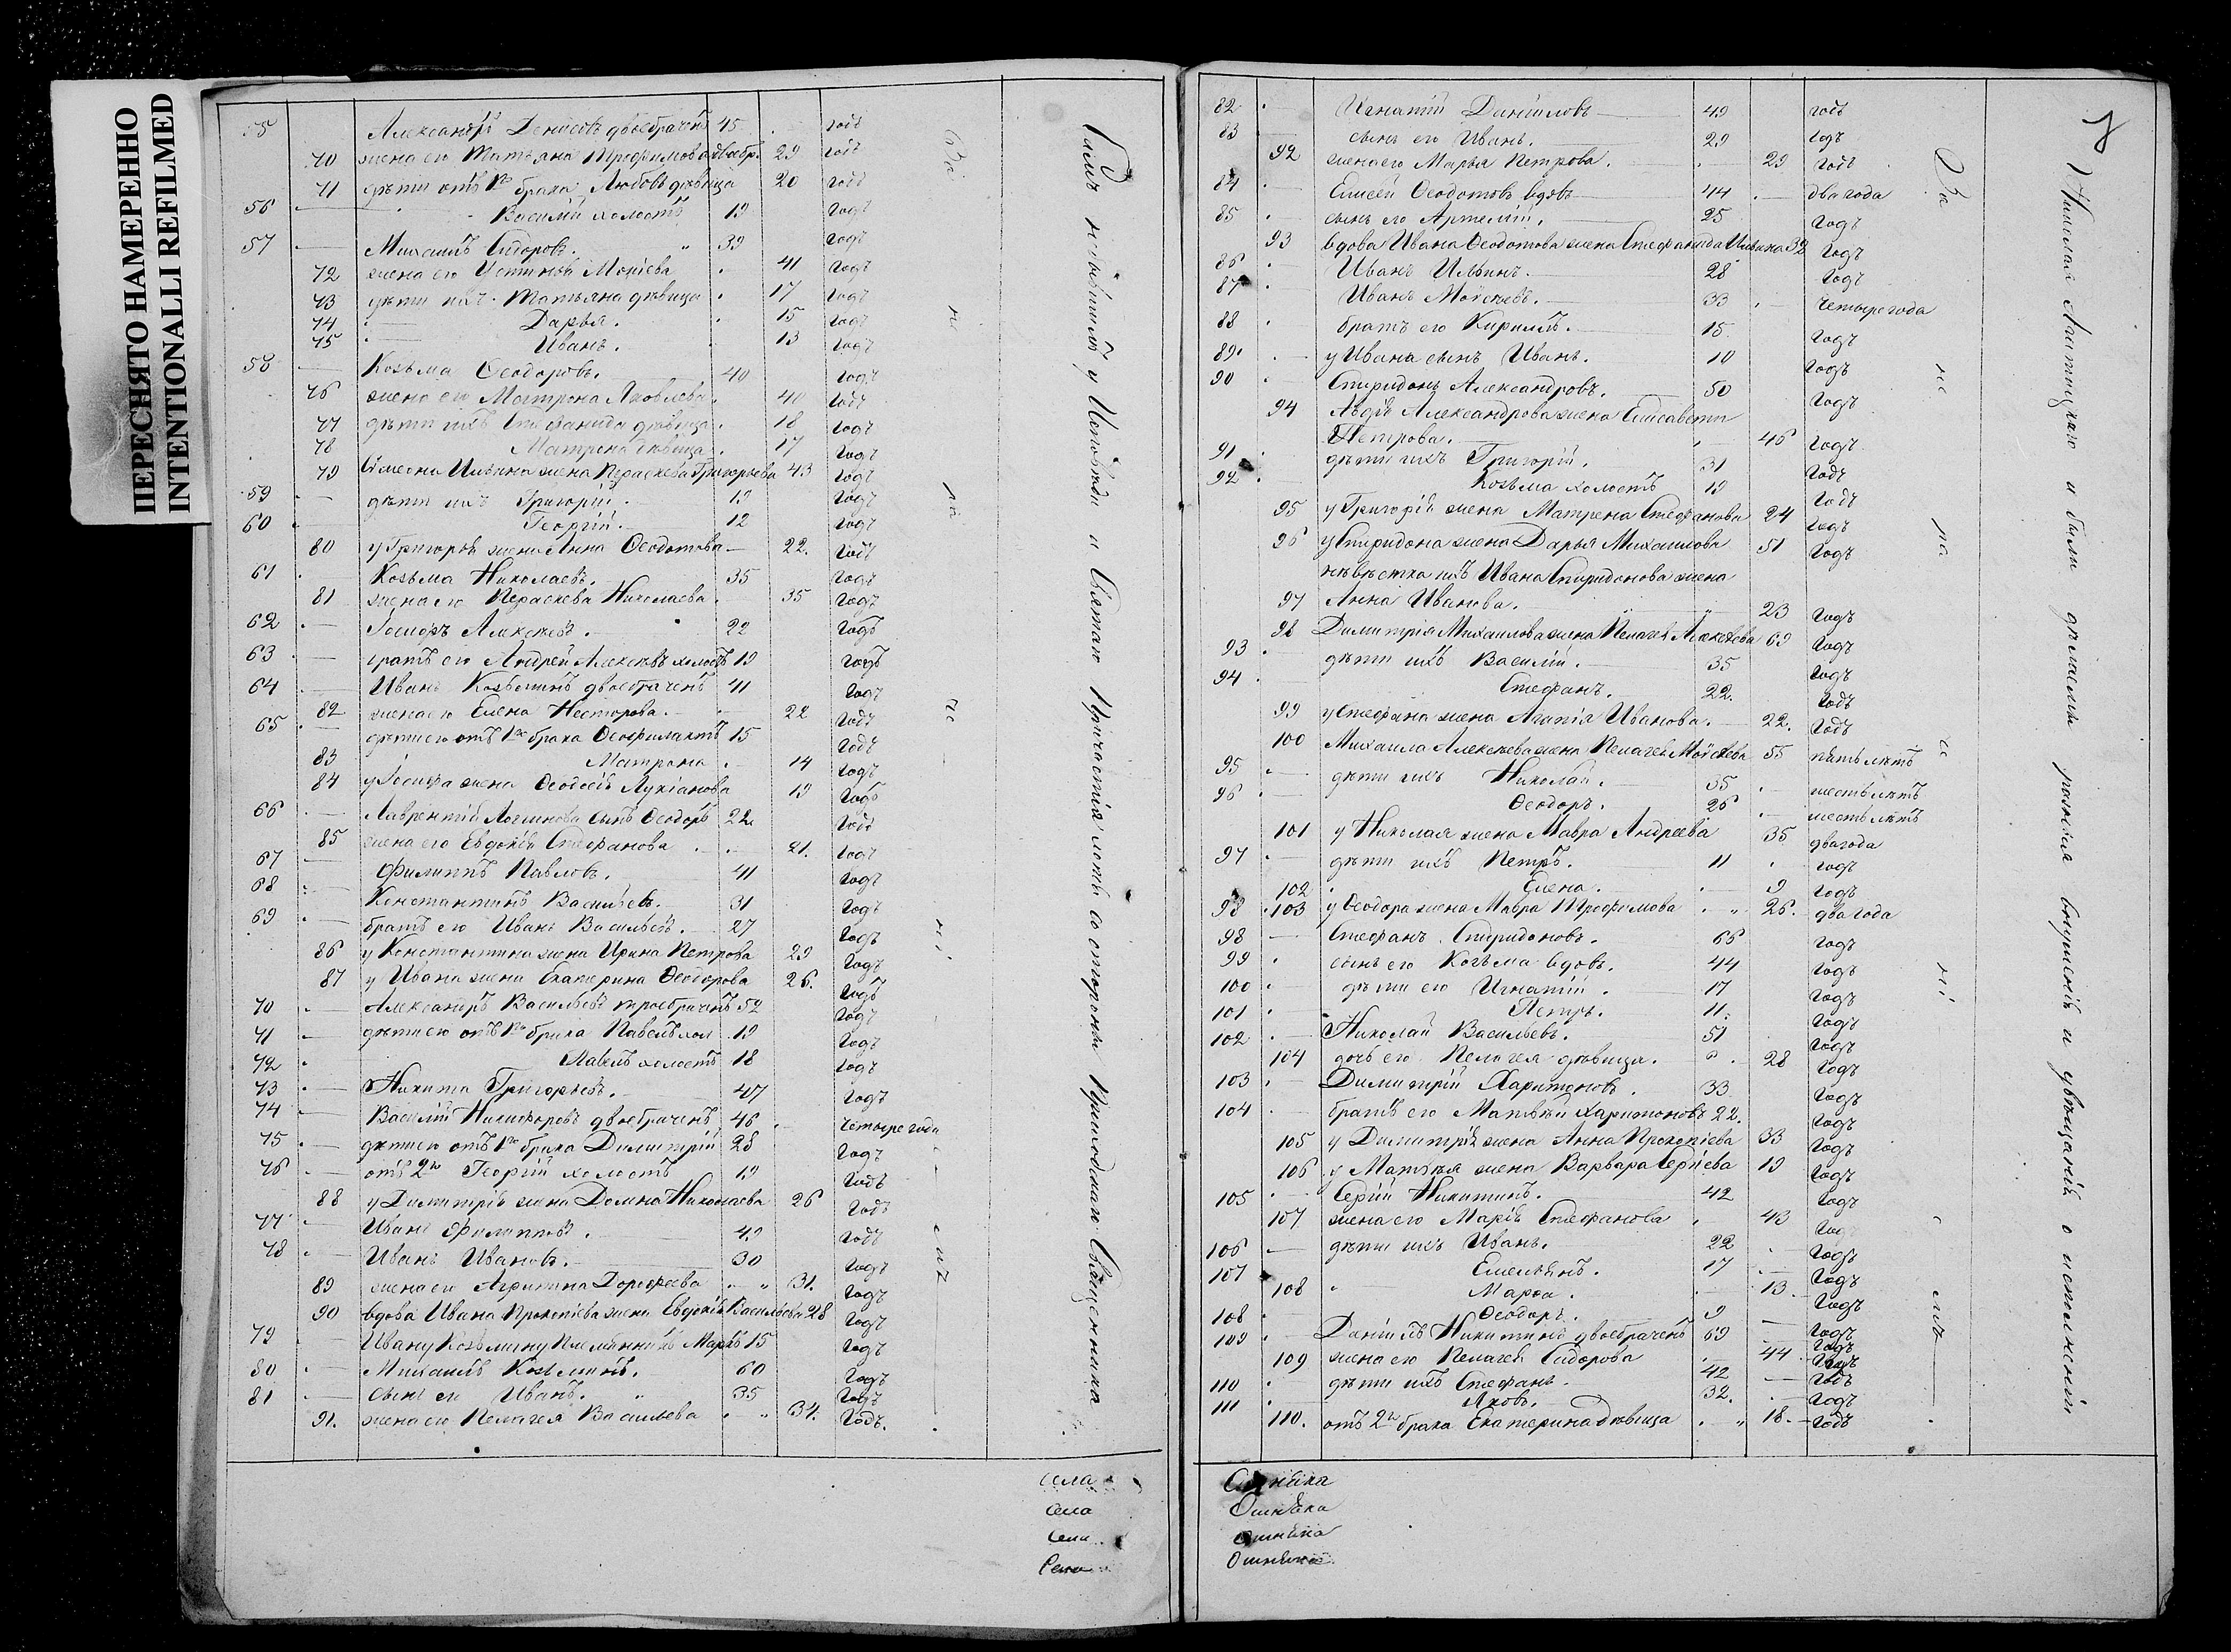 ПЕРЕСНЯТО НАМЕРЕННО
INTENTIONALLI REFILMED
55 Александръ Денисовъ двоебраченъ 45 годъ
70 жена его Татьяна Трофимова двоебр. 29 годъ
71 дѣти отъ 1го брака Любовь дѣвица 20 годъ
56 Василий холостъ 19 годъ
57 Михаилъ Сидоровъ. 39 годъ
72 жена его Устинья Мокіева 41 годъ
73 дѣти ихъ. Татьяна дѣвица 17 годъ
74 Дарья. 15 годъ
75 Иванъ. 13 годъ
58 Козьма Ѳеодоровъ. 40 годъ
76 жена его Матрона Яковлева. 40 годъ
77 дѣти ихъ Стефанида дѣвица. 18 годъ
78 Матрона дѣвица. 17 годъ
79 Симеона Ильина жена Параскева Григорьева 43 годъ
59 дѣти ихъ Григорій. 19 годъ
60 Георгій. 12 годъ
80 у Григорья жена Анна Ѳеодотова 22. годъ
61 Козьма Николаевъ. 35 годъ
81 жена его Параскева Николаева. 35 годъ
62 Іосифъ Алексѣевъ. 22 годъ
63 братъ его Андрей Алексѣевъ холостъ 19 годъ
64 Иванъ Козьминъ двоебраченъ 41 годъ
82 жена его Елена Несторова. 22 годъ
65 дѣти его отъ 1го брака Ѳеофилактъ 15 годъ
83 Матрона 14 годъ
84 у Іосифа жена Ѳеодосія Лукіанова 19 годъ
66 Лаврентія Логинова сынъ Ѳеодоръ 22. годъ
85 жена его Евдокія Стефанова 21. годъ
67 Филиппъ Павловъ. 41 годъ
68 Константинъ Васильевъ. 31 годъ
69 братъ его Иванъ Васильевъ. 27 годъ
86 у Константина жена Ирина Петрова 29 годъ
87 у Ивана жена Екатерина Ѳеодорова 26. годъ
70 Александръ Васильевъ троебраченъ 52 годъ
71 дѣти его отъ 1го брака Павелъ хол 19 годъ
72 Павелъ холостъ 18 годъ
73 Никита Григорьевъ. 47 годъ
74 Василій Никифоровъ двоебраченъ 46 четыре года
75 дѣти его отъ 1го брака Димитрій 28 годъ
76 отъ 2го Георгій холостъ 19 годъ
88 у Димитрія жена Домна Николаева 26 годъ
77 Иванъ Филипповъ. 49 годъ
78 Иванъ Ивановъ. 30 годъ
89 жена его Агрипина Дорофеева 31. годъ
90 вдова Ивана Прокопіева жена Евдокія Васильева 28 годъ
79 Ивану Козьмину племянникъ Маркъ 15 годъ
80 Михаилъ Козьминъ. 60 годъ
81 сынъ его Иванъ. 35 годъ
91. жена его Пелагея Васильева 34. годъ.
За не по че ні емъ
Сихъ небывшихъ у Исповѣди и Святаго Причастія лѣтъ со стороны приходскаго Священника
села
села
села
села
82 Игнатій Даніиловъ 49 годъ
83 сынъ его Иванъ. 29 годъ
92 жена его Марья Петрова. 29 годъ
84 Елисей Ѳеодотовъ вдовъ 44 два года
85 сынъ его Артемій. 25 годъ
93 вдова Ивана Ѳеодотова жена Стефанида Ильина 32 годъ
86 Иванъ Ильинъ. 28 годъ
87 Иванъ Моисѣевъ. 33 четыре года
88 братъ его Кириллъ. 15 годъ
89. у Ивана сынъ Иванъ. 10 годъ
90 Спиридонъ Александровъ. 50 годъ
94 Александрова жена Елисавета
Петрова. 46 годъ
91 дѣти ихъ Григорій. 31 годъ
92 Козьма холостъ 19 годъ
95 у Григорія жена Матрена Стефанова 24 годъ
96 у Спиридона жена Дарья Михаилова 51 годъ
невѣстка ихъ Ивана Спиридонова жена
97 Анна Иванова. 23 годъ
98 Димитрія Михаилова жена Пелагея Алексѣева 69 годъ
93 дѣти ихъ Василій. 35 годъ
94 Стефанъ. 22. годъ
99 у Стефана жена Агапія Иванова. 22. годъ
100 Михаила Алексѣева жена Пелагея Моисѣева 55 пять лѣтъ
95 дѣти ихъ Николай. 35 шесть лѣтъ
96 Ѳеодоръ. 26 шесть лѣтъ
101 у Николая жена Мавра Андреева 35 два года
97 дѣти ихъ Петръ. 11 годъ
102 Елена. 9 годъ
98 103 у Ѳеодора жена Мавра Трофимова 26. два года
98 Стефанъ Спиридоновъ. 66 годъ
99 сынъ его Козьма вдовъ. 44 годъ
100 дѣти его Игнатій. 17 годъ
101 Петръ. 11. годъ
102 Николай Васильевъ. 51 годъ
104 дочь его Пелагея дѣвица. 28 годъ
103 Димитрій Харитоновъ. 33 годъ
104 братъ его Матвѣй Харитоновъ 22. годъ
105 у Димитрія жена Анна Прокопіева 33 годъ
106 у Матвѣя жена Варвара Сергіева 19 годъ
105 Сергій Никитинъ. 42 годъ
107 жена его Марія Стефанова 43 годъ
106 дѣти ихъ Иванъ. 22 годъ
107 Емельянъ. 17 годъ
108 Марѳа. 13. годъ
108 Ѳеодоръ. 9 годъ
109 Даніилъ Никитинъ двоебраченъ 69 годъ
109 жена его Пелагея Сидорова 44 годъ
110 дѣти ихъ Стефанъ. 42 годъ
111 Яковъ. 32. годъ
110. отъ 2го брака Екатерина дѣвица 18. годъ
За не по че ні емъ
Николая и были дѣлаемы разныя внушенія и увѣщанія о исполненіи
Ошибка
Ошибка
Ошибка